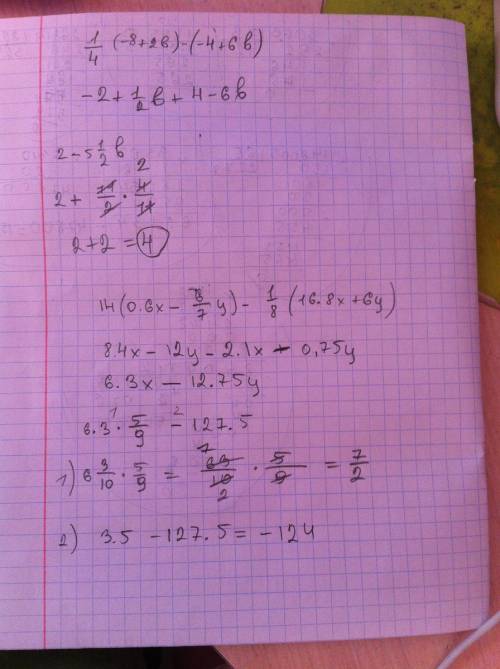 1/4 (-8+2в)-(-4+6в)
-2+ 1/2 в+ 4-6в
2-5 1/2 в
2+ 11/2 · 4/11 2
2+2 =4
14(0.6x- 6/7 y)- 1/8 (16.8x+6y)
8.4x-12y-2.1x - 0,75y
6.3x-12.75y
6.3 ·1 5/9 -2 127.5
1) 6 3/10 · 5/9 = 63/10 7 2 · 5/9 = 7/2
2) 3.5 -127.5= -124